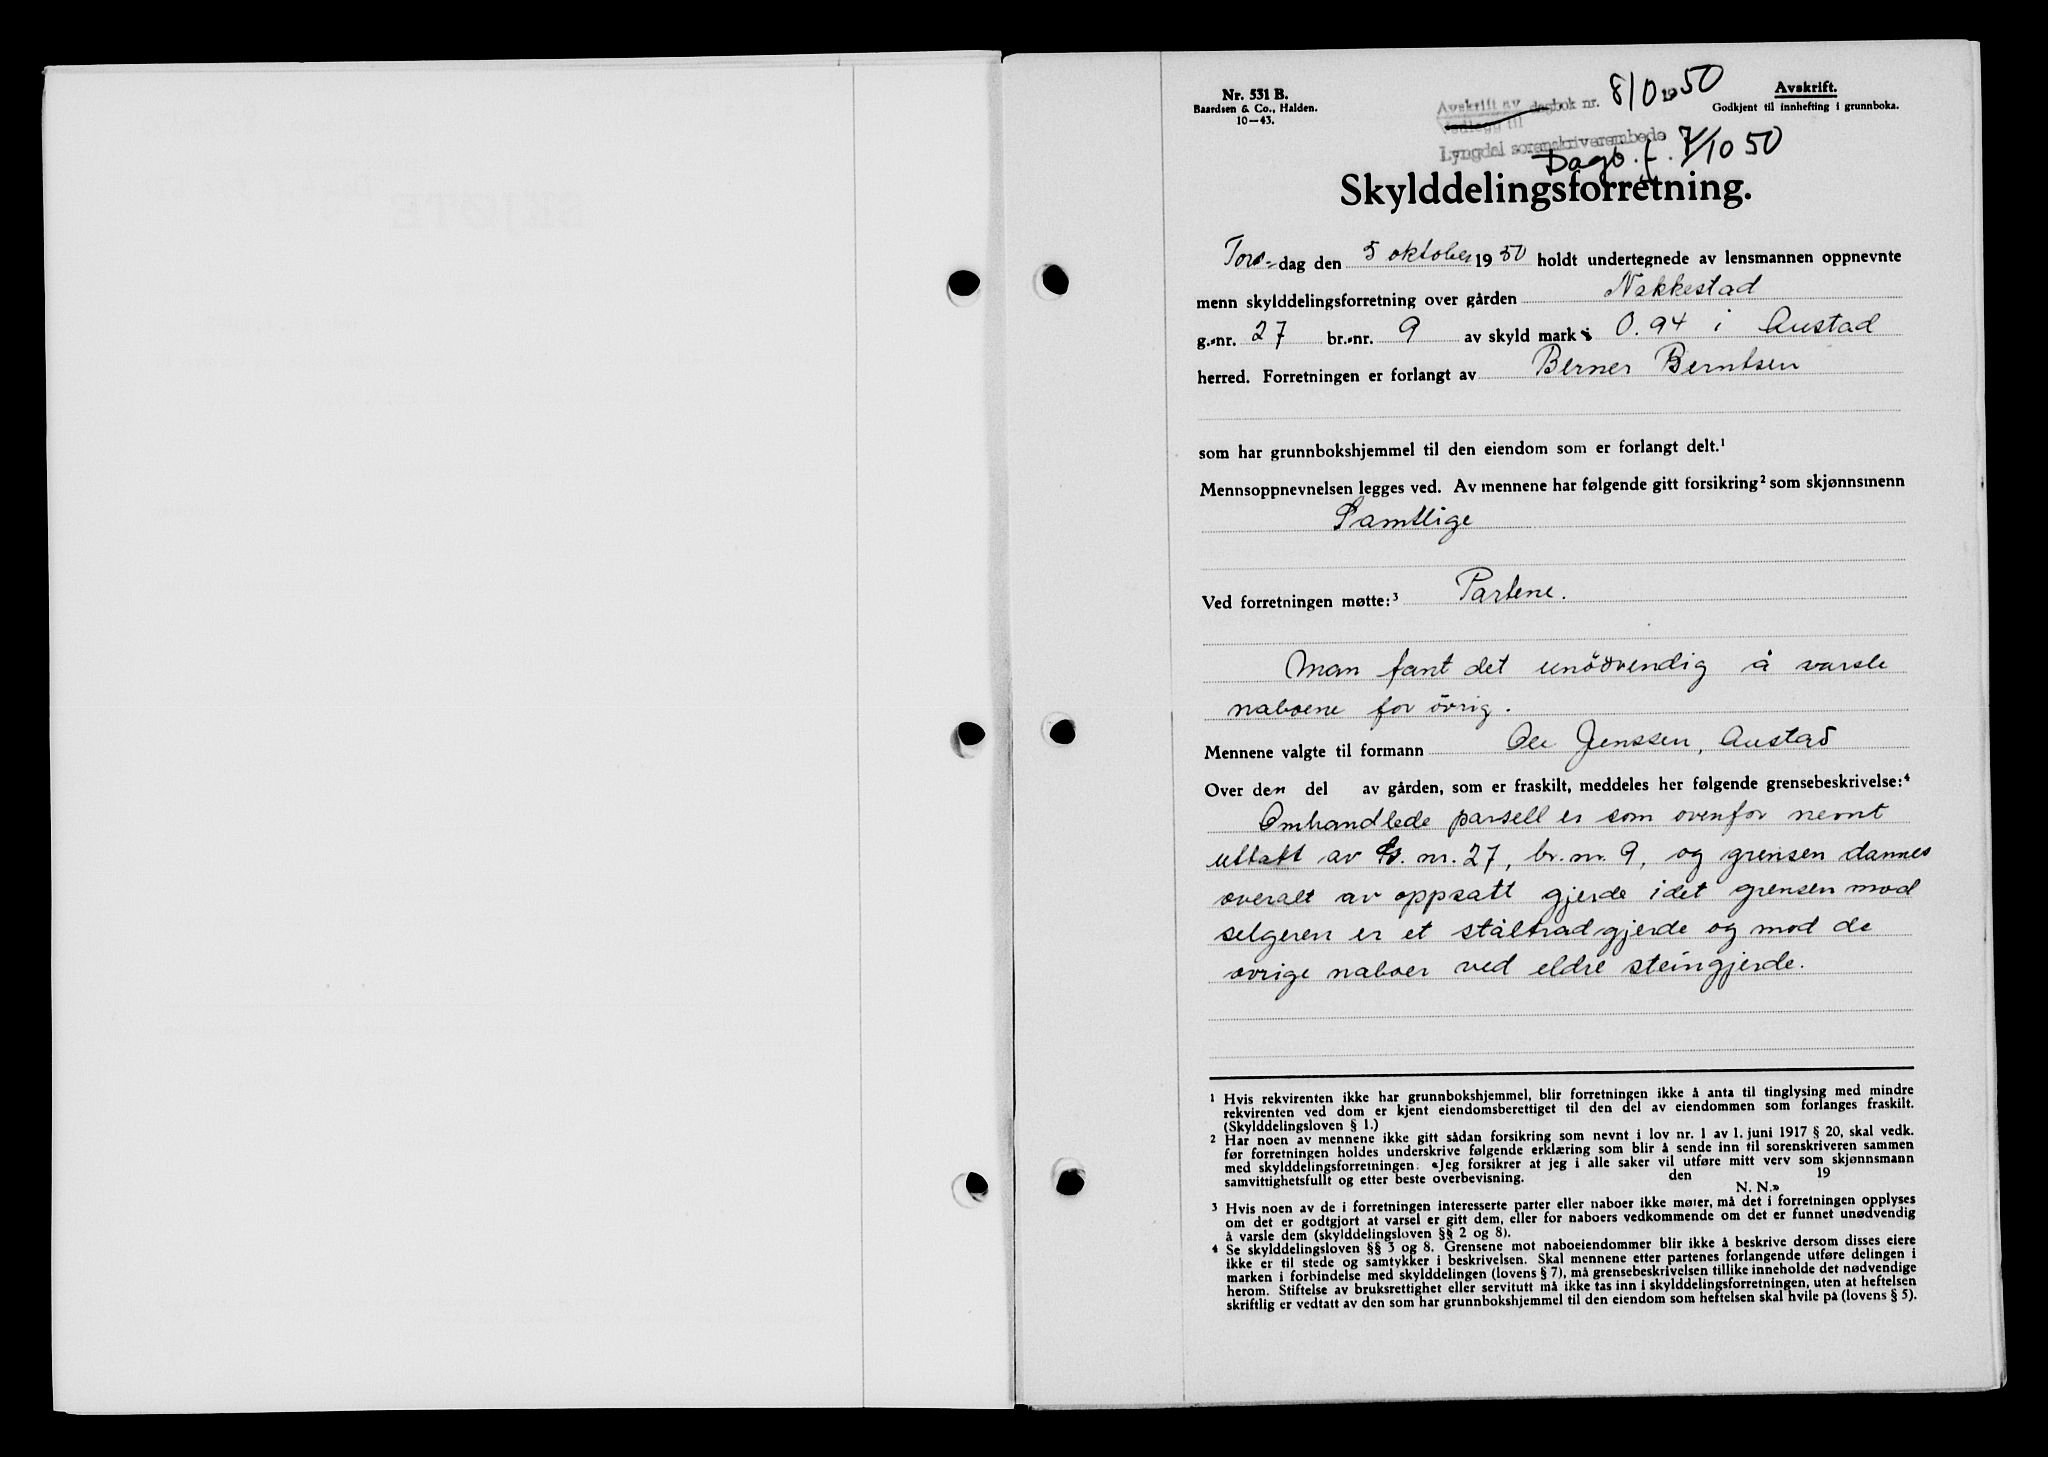 Nr. 531 B.
Baardsen & Co., Halden.
10—43.
Avskrift av dagbok nr. 810 1950
Vedlegg til
Lyngdal sorenskriverembede
Dagb. f. 7/10 50
Avskrift.
Godkjent til innhefting i grunnboka.
Skylddelingsforretning.
Tors-dag den 5 oktober 1950 holdt undertegnede av lensmannen oppnevnte
menn skylddelingsforretning over gården Nakkestad
g.-nr. 27 br.-nr. 9 av skyld mark 0.94 i Austad
herred. Forretningen er forlangt av Berner Berntsen
som har grunnbokshjemmel til den eiendom som er forlangt delt.¹
Mennsoppnevnelsen legges ved. Av mennene har følgende gitt forsikring² som skjønnsmenn
Samtlige
Ved forretningen møtte:³ Partene.
Man fant det unödvendig å varsle
naboene for övrig.
Mennene valgte til formann Ole Jenssen, Austad
Over den del av gården, som er fraskilt, meddeles her følgende grensebeskrivelse:⁴
Omhandlede parsell er som ovenfor nevnt
uttatt av G. nr. 27, br. nr. 9, og grensen dannes
overalt av oppsatt gjerde idet grensen mod
selgeren er et ståltradgjerde og mod de
övrige naboer ved eldre steingjerde.
¹ Hvis rekvirenten ikke har grunnbokshjemmel, blir forretningen ikke å anta til tinglysing med mindre
rekvirenten ved dom er kjent eiendomsberettiget til den del av eiendommen som forlanges fraskilt.
(Skylddelingsloven § 1.)
² Har noen av mennene ikke gitt sådan forsikring som nevnt i lov nr. 1 av 1. juni 1917 § 20, skal vedk.
før forretningen holdes underskrive følgende erklæring som blir å sende inn til sorenskriveren sammen
med skylddelingsforretningen: «Jeg forsikrer at jeg i alle saker vil utføre mitt verv som skjønnsmann
samvittighetsfullt og etter beste overbevisning. den 19
N. N.»
³ Hvis noen av de i forretningen interesserte parter eller naboer ikke møter, må det i forretningen opplyses
om det er godtgjort at varsel er gitt dem, eller for naboers vedkommende om det er funnet unødvendig
å varsle dem (skylddelingsloven §§ 2 og 8).
⁴ Se skylddelingsloven §§ 3 og 8. Grensene mot naboeiendommer blir ikke å beskrive dersom disses eiere
ikke er til stede og samtykker i beskrivelsen. Skal mennene etter partenes forlangende utføre delingen i
marken i forbindelse med skylddelingen (lovens § 7), må grensebeskrivelsen tillike inneholde det nødvendige
herom. Stiftelse av bruksrettighet eller servitutt må ikke tas inn i skylddelingsforretningen, uten at heftelsen
skriftlig er vedtatt av den som har grunnbokshjemmel til den eiendom som heftelsen skal hvile på (lovens § 5).